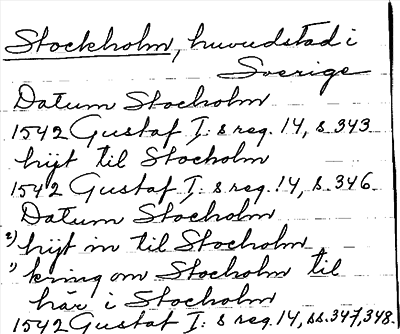 Stockholm, huvudstad i
Sverige
Datum Stocholm
1542 Gustaf I: s reg. 14, s. 343
hijt til Stocholm
1542 Gustaf I: s reg. 14, s. 346.
Datum Stocholm
2) hijt in til Stocholm
1) kring om Stocholm til
här i Stocholm
1542 Gustaf I: s reg. 14, ss. 347, 348.